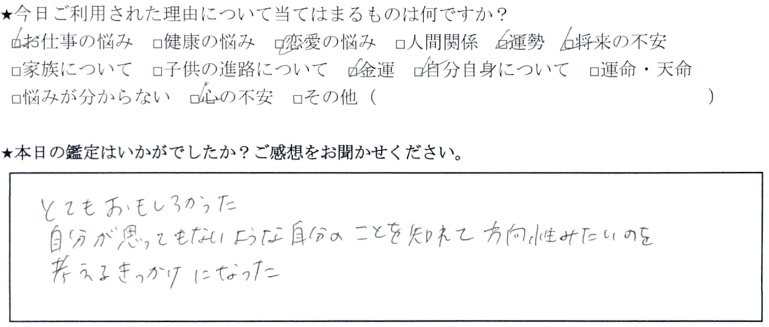 ★今日ご利用された理由について当てはまるものは何ですか？
☑お仕事の悩み　□健康の悩み　☑恋愛の悩み　□人間関係　☑運勢　☑将来の不安
□家族について　□子供の進路について　☑金運　☑自分自身について　□運命・天命
□悩みが分からない　☑心の不安　□その他（　　　　　　　　　　　　　　　　　）
★本日の鑑定はいかがでしたか？ご感想をお聞かせください。
とてもおもしろかった
自分が思ってもないような自分のことを知れて方向性みたいのを
考えるきっかけになった